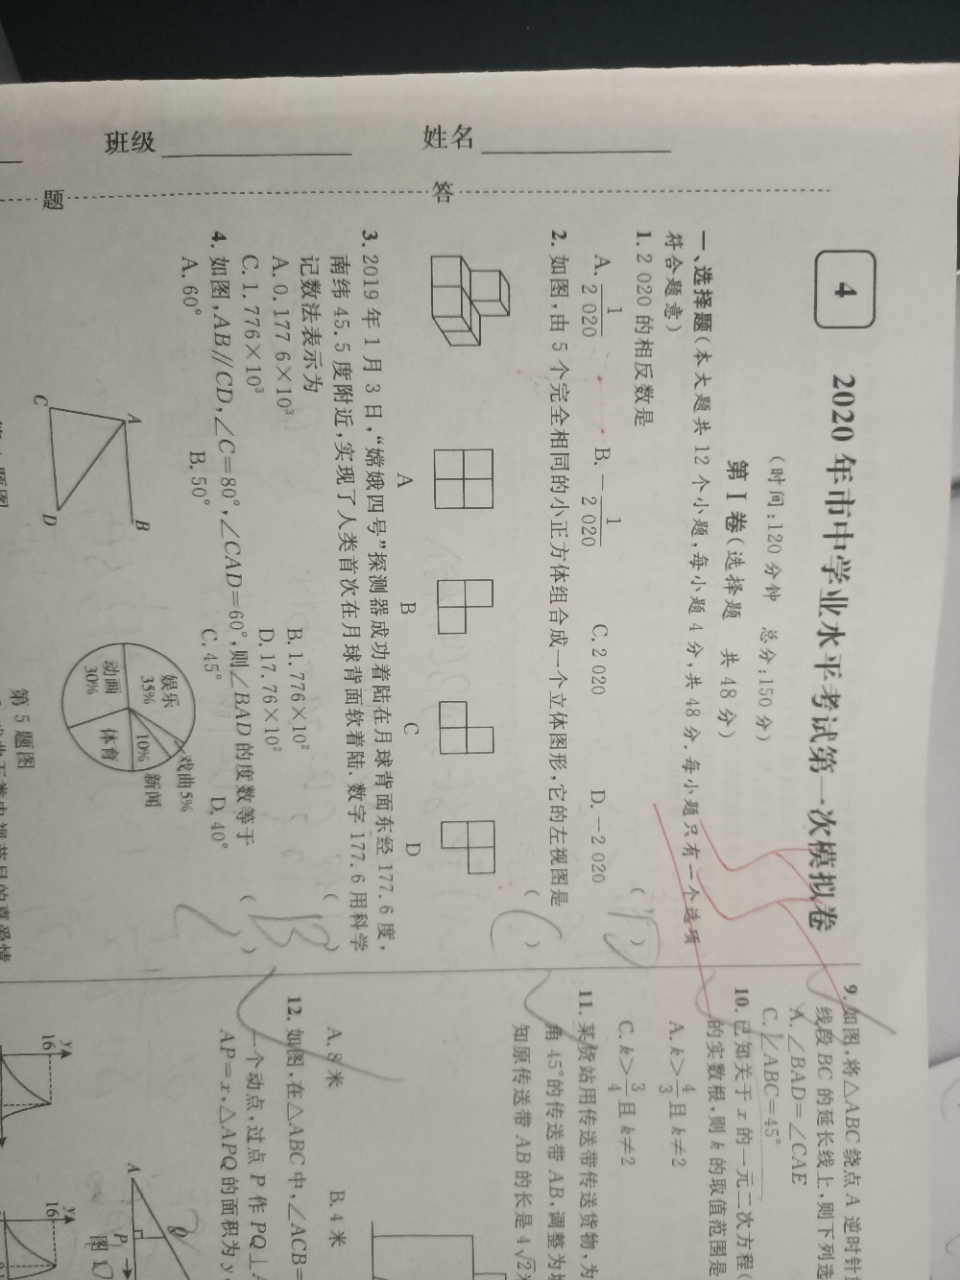 班级
姓名
答
题
4
2020年市中学业水平考试第一次模拟卷
(时间:120分钟 总分:150分)
第Ⅰ卷(选择题 共48分)
一、选择题(本大题共12个小题,每小题4分,共48分.每小题只有一个选项
符合题意)
1. 2 020的相反数是 ( D )
A. 1/2 020 B. -1/2 020 C. 2 020 D. -2 020
2. 如图,由5个完全相同的小正方体组合成一个立体图形,它的左视图是 ( )
A B C D
3. 2019年1月3日,“嫦娥四号”探测器成功着陆在月球背面东经177.6度,
南纬45.5度附近,实现了人类首次在月球背面软着陆.数字177.6用科学
记数法表示为 ( B )
A. 0.177 6×10³ B. 1.776×10²
C. 1.776×10³ D. 17.76×10²
4. 如图,AB∥CD,∠C=80°,∠CAD=60°,则∠BAD的度数等于 ( )
A. 60° B. 50° C. 45° D. 40°
A
B
C
D
娱乐
35%
动画
30%
体育
10%
新闻
戏曲5%
第5题图
9. 如图,将△ABC绕点A逆时针
线段BC的延长线上,则下列选
A. ∠BAD=∠CAE
C. ∠ABC=45°
10. 已知关于x的一元二次方程(
的实数根,则k的取值范围是
A. k>4/3且k≠2
C. k>3/4且k≠2
11. 某货站用传送带传送货物,为
角45°的传送带AB,调整为
知原传送带AB的长是4√2
A. 8米 B. 4米
12. 如图,在△ABC中,∠ACB=
一个动点,过点P作PQ⊥A
AP=x,△APQ的面积为y
A
P
Q
图1
y
16
y
16